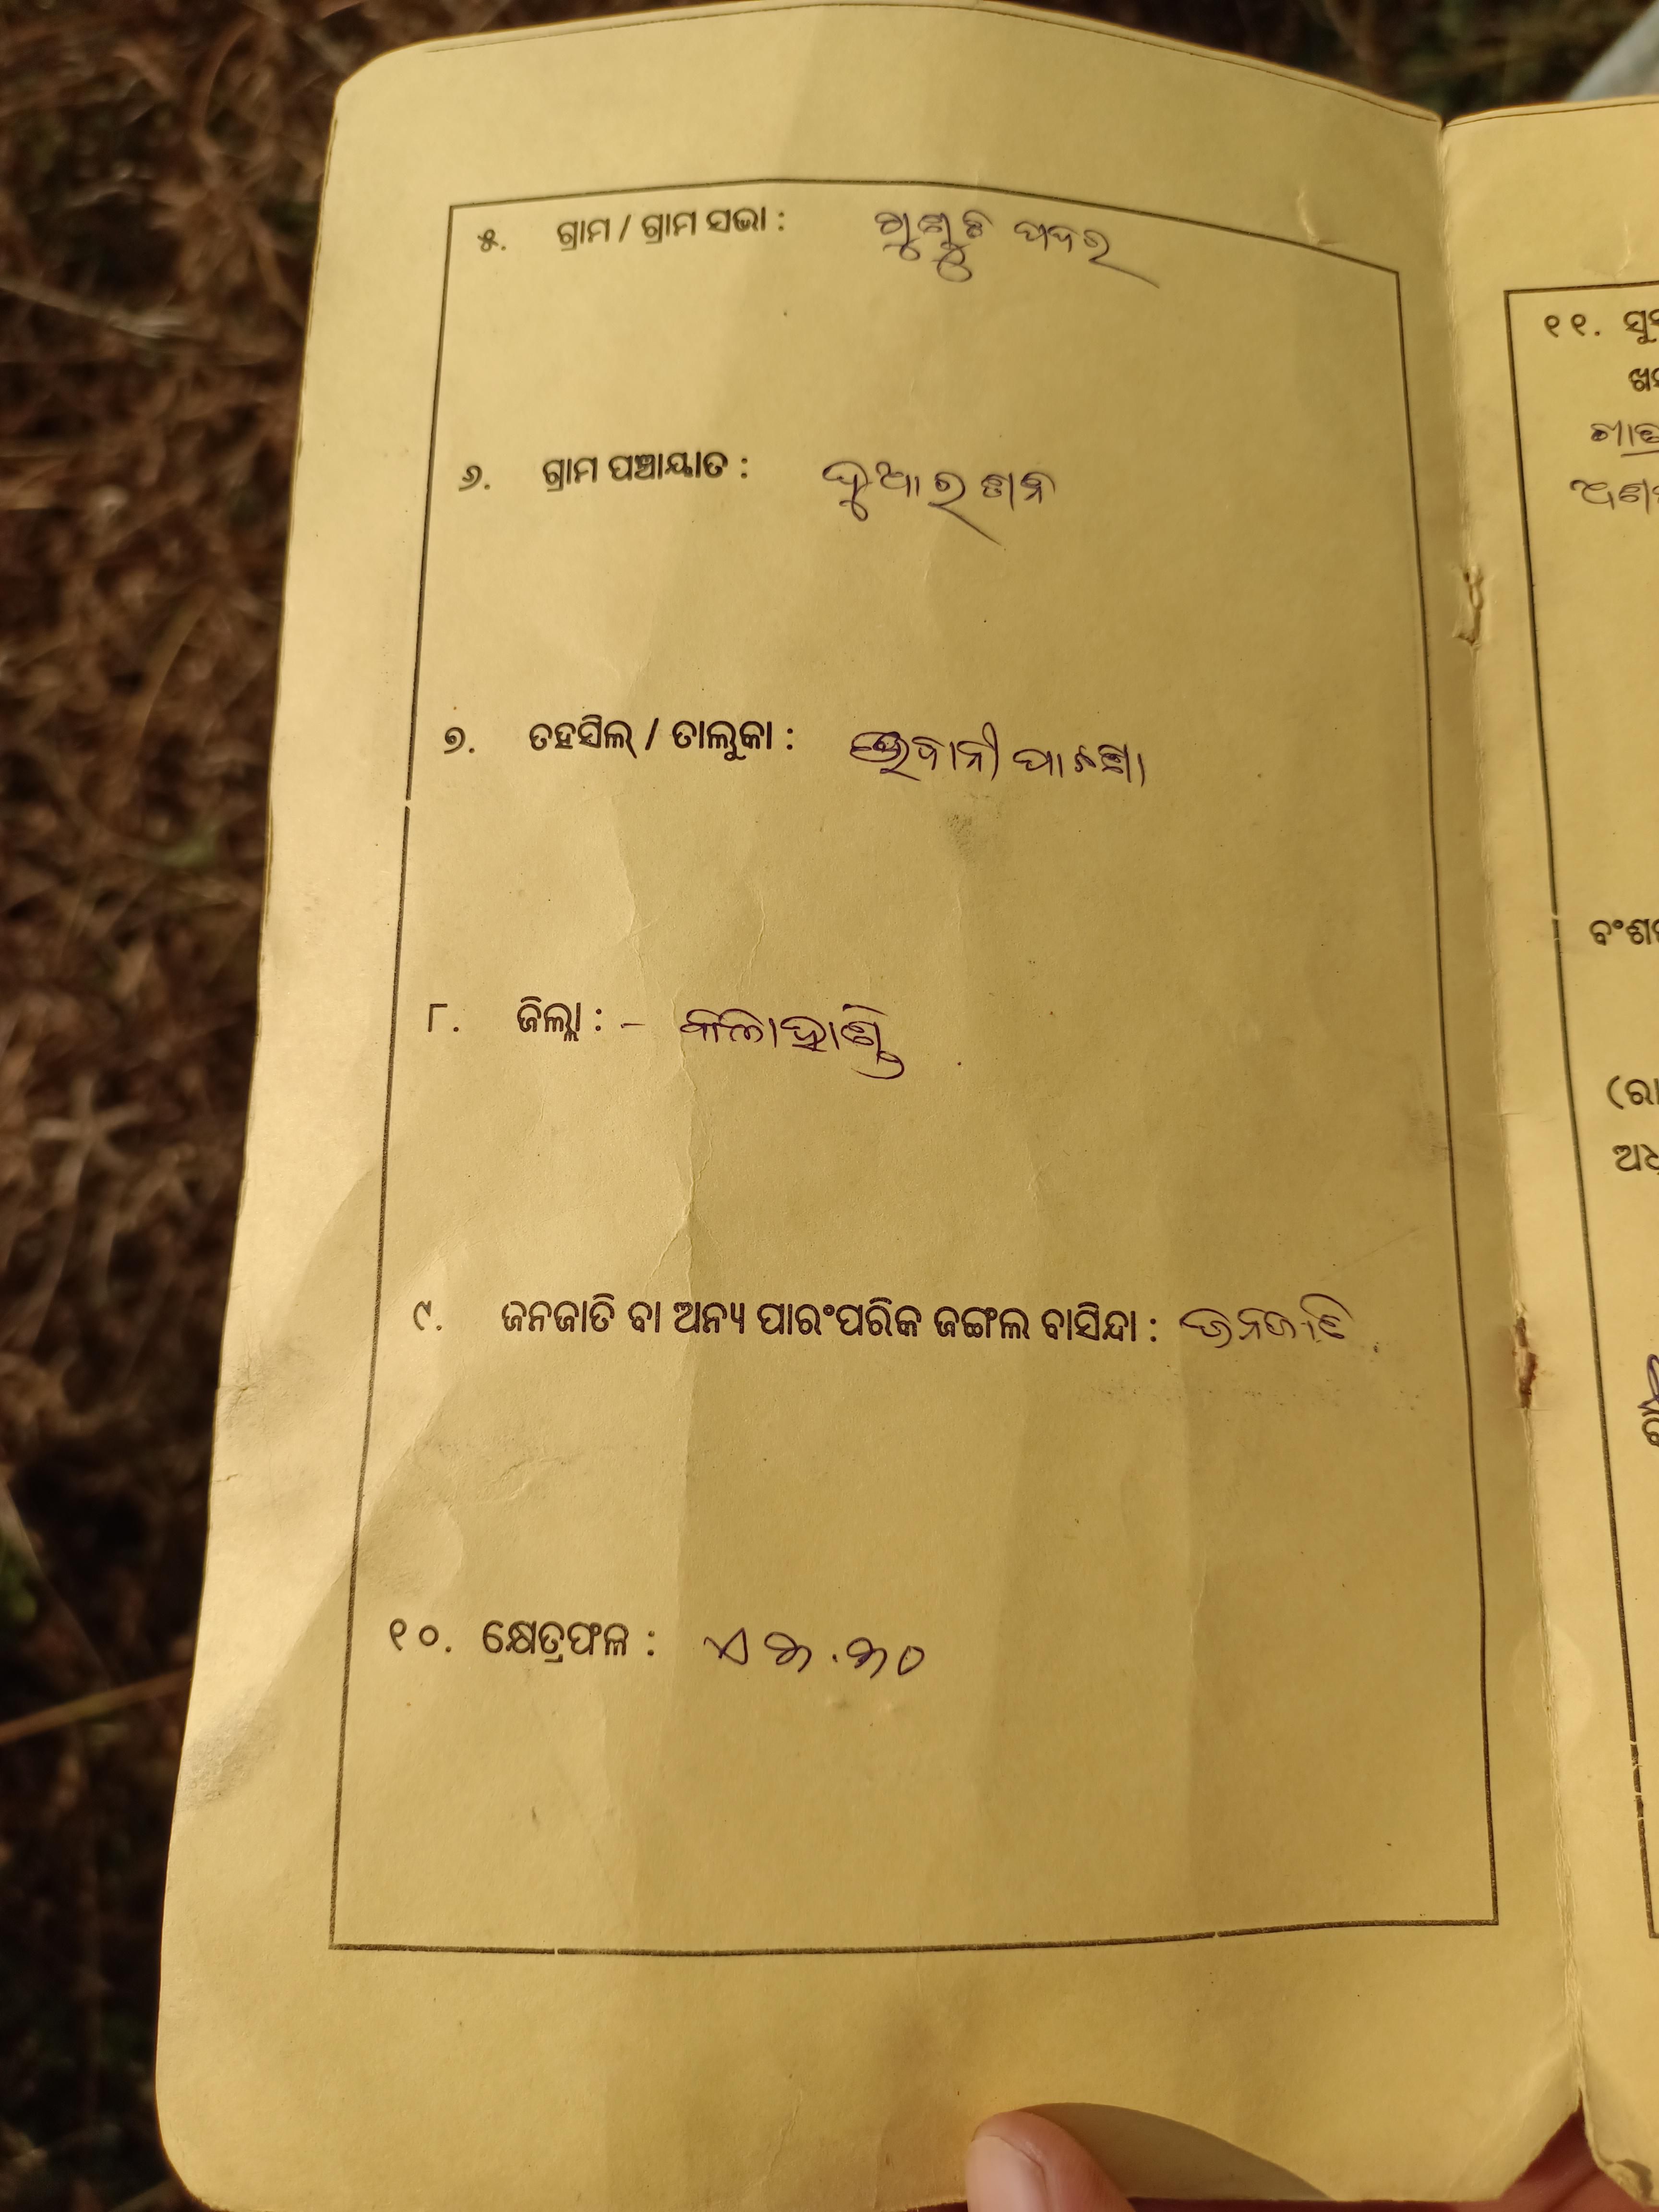 ୫. ଗ୍ରାମ / ଗ୍ରାମ ସଭା : ପଦର
୬. ଗ୍ରାମ ପଞ୍ଚାୟାତ : ଦୁଆରଶନ
୭. ତହସିଲ୍ / ତାଲୁକା : ଭବାନୀପାଟଣା
୮. ଜିଲ୍ଲା : - କଳାହାଣ୍ଡି
୯. ଜନଜାତି ବା ଅନ୍ୟ ପାରଂପରିକ ଜଙ୍ଗଲ ବାସିନ୍ଦା : ଜନଜାତି
୧୦. କ୍ଷେତ୍ରଫଳ : ଏ ୩.୩୦
୧୧.